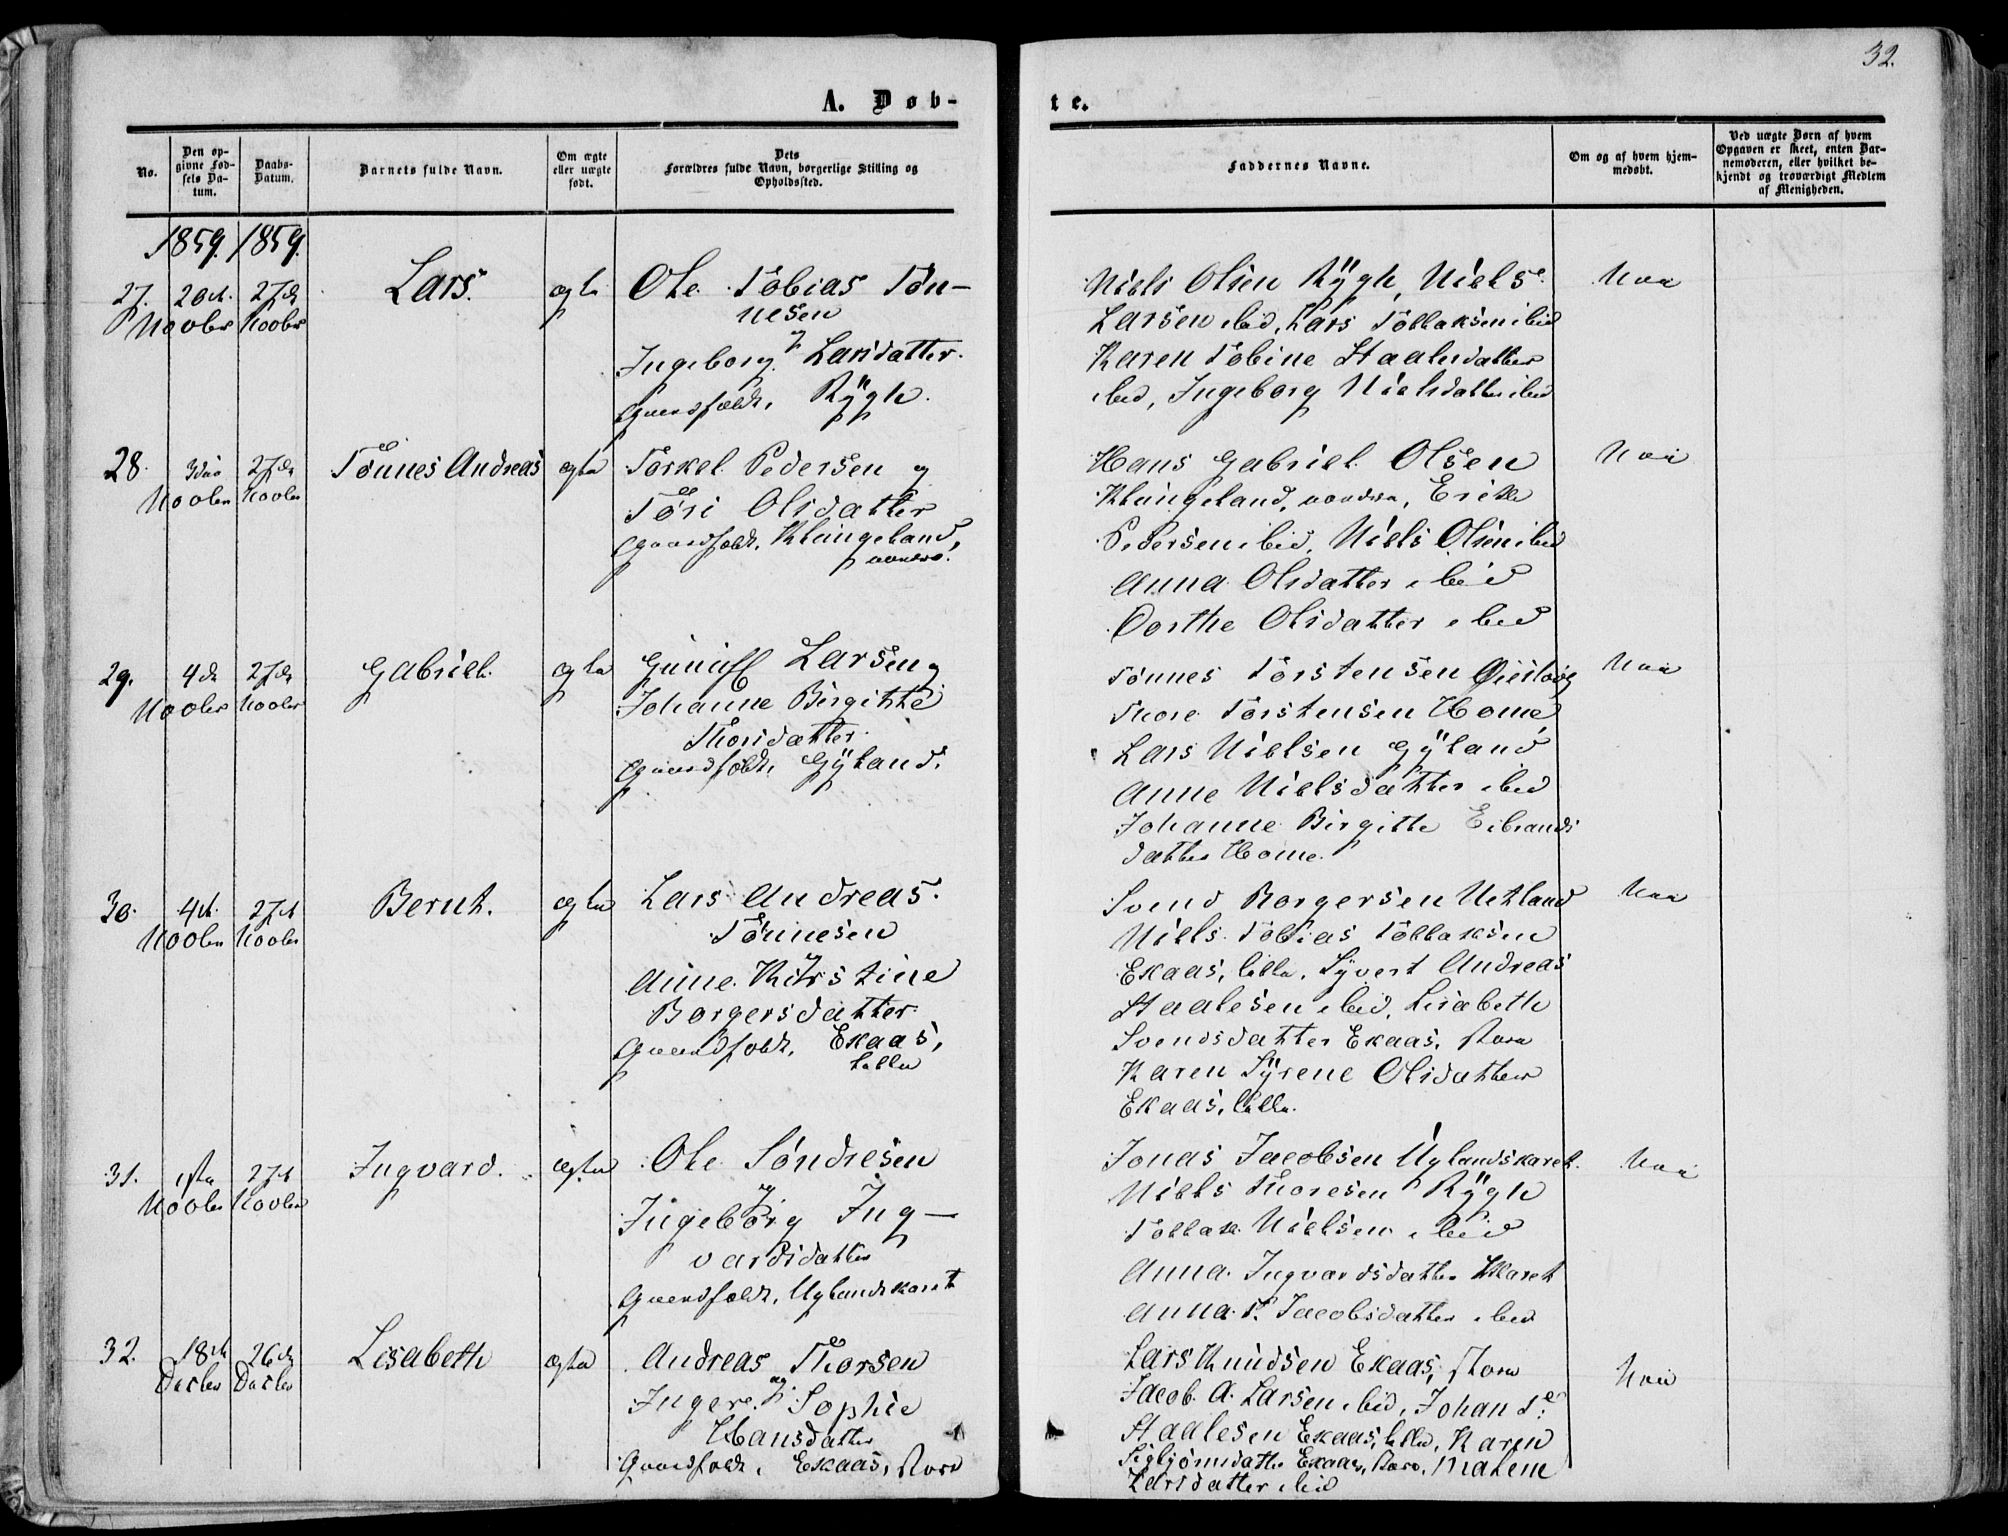 32.
A. Døb-
te.
No.
Den op-
givne Fød-
sels Da-
tum.
Daabs-
Datum.
Barnets fulde Navn.
Om ægte
eller uægte
født.
Dets
Forældres fulde Navn, borgerlige Stilling og
Opholdssted.
Faddernes Navne.
Om og af hvem hjem-
medøbt.
Ved uægte Børn af hvem
Opgaven er skeet, enten Bar-
nemoderen, eller hvilket be-
kjendt og troværdigt Medlem
af Menigheden.
1859. 1859.
27. 20de 27de Lars. ægte Ole Tobias Tøn-
Novbr Novbr nesen
og
Ingeborg Larsdatter
Gaardfolk, Rÿgh.
Niels Olsen Rÿgh, Niels
Larsen ibid, Lars Tollaksen ibid
Karen Tobine Staalesdatter
ibid, Ingeborg Nielsdatter ibid
Nei
28. 3die 27de Tønnes Andreas ægte Torkel Pedersen og
Novbr Novbr Tøri Olsdatter
Gaardfolk, Klungeland,
nordre.
Hans Gabriel Olsen
Klungeland, nordre, Erik
Pedersen ibid, Niels Olsen ibid
Anna Olsdatter ibid
Dorthe Olsdatter ibid
Nei
29. 4de 27de Gabriel. ægte Larsen og
Novbr Novbr Johanne Birgitte
Thorsdatter
Gaardfolk, Gÿland.
Tønnes Torstensen
Thore Torstensen Home,
Lars Nielsen Gÿland
Anne Nielsdatter ibid
Johanne Birgitte Eibrands
datter Home.
Nei
30. 4de 27de Bernt. ægte Lars Andreas
Novbr Novbr Tønnesen
og
Anne Kirstine
Borgersdatter
Gaardfolk, Ekaas,
lille
Svend Borgersen Netland
Niels Tobias Tollaksen
Ekaas, lille, Sÿvert Andreas
Staalesen ibid, Lisabeth
Svendsdatter Ekaas, store
Karen Sÿrene Olsdatter
Ekaas, lille.
Nei
31. 1ste 27de Ingvard. ægte Ole Søndresen
Novbr Novbr og
Ingeborg Ing-
vardsdatter
Gaardfolk, Uglandskaret
Jonas Jacobsen Uglandskaret.
Niels Thoresen Rÿgh
Tollak Nielsen ibid
Anna Ingvardsdatter Skaret
Anna T. Jacobsdatter ibid
Nei
32. 18de 26de Lisabeth ægte Andreas Thorsen
Decbr Decbr og
Inger Sophie
Hansdatter
Gaardfolk, Ekaas, store
Lars Knudsen Ekaas, store
Jacob A. Larsen ibid, Johan
Staalesen Ekaas, lille, Karen
Sigbjørnsdatter Ekaas, store, Malene
Larsdatter ibid
Nei